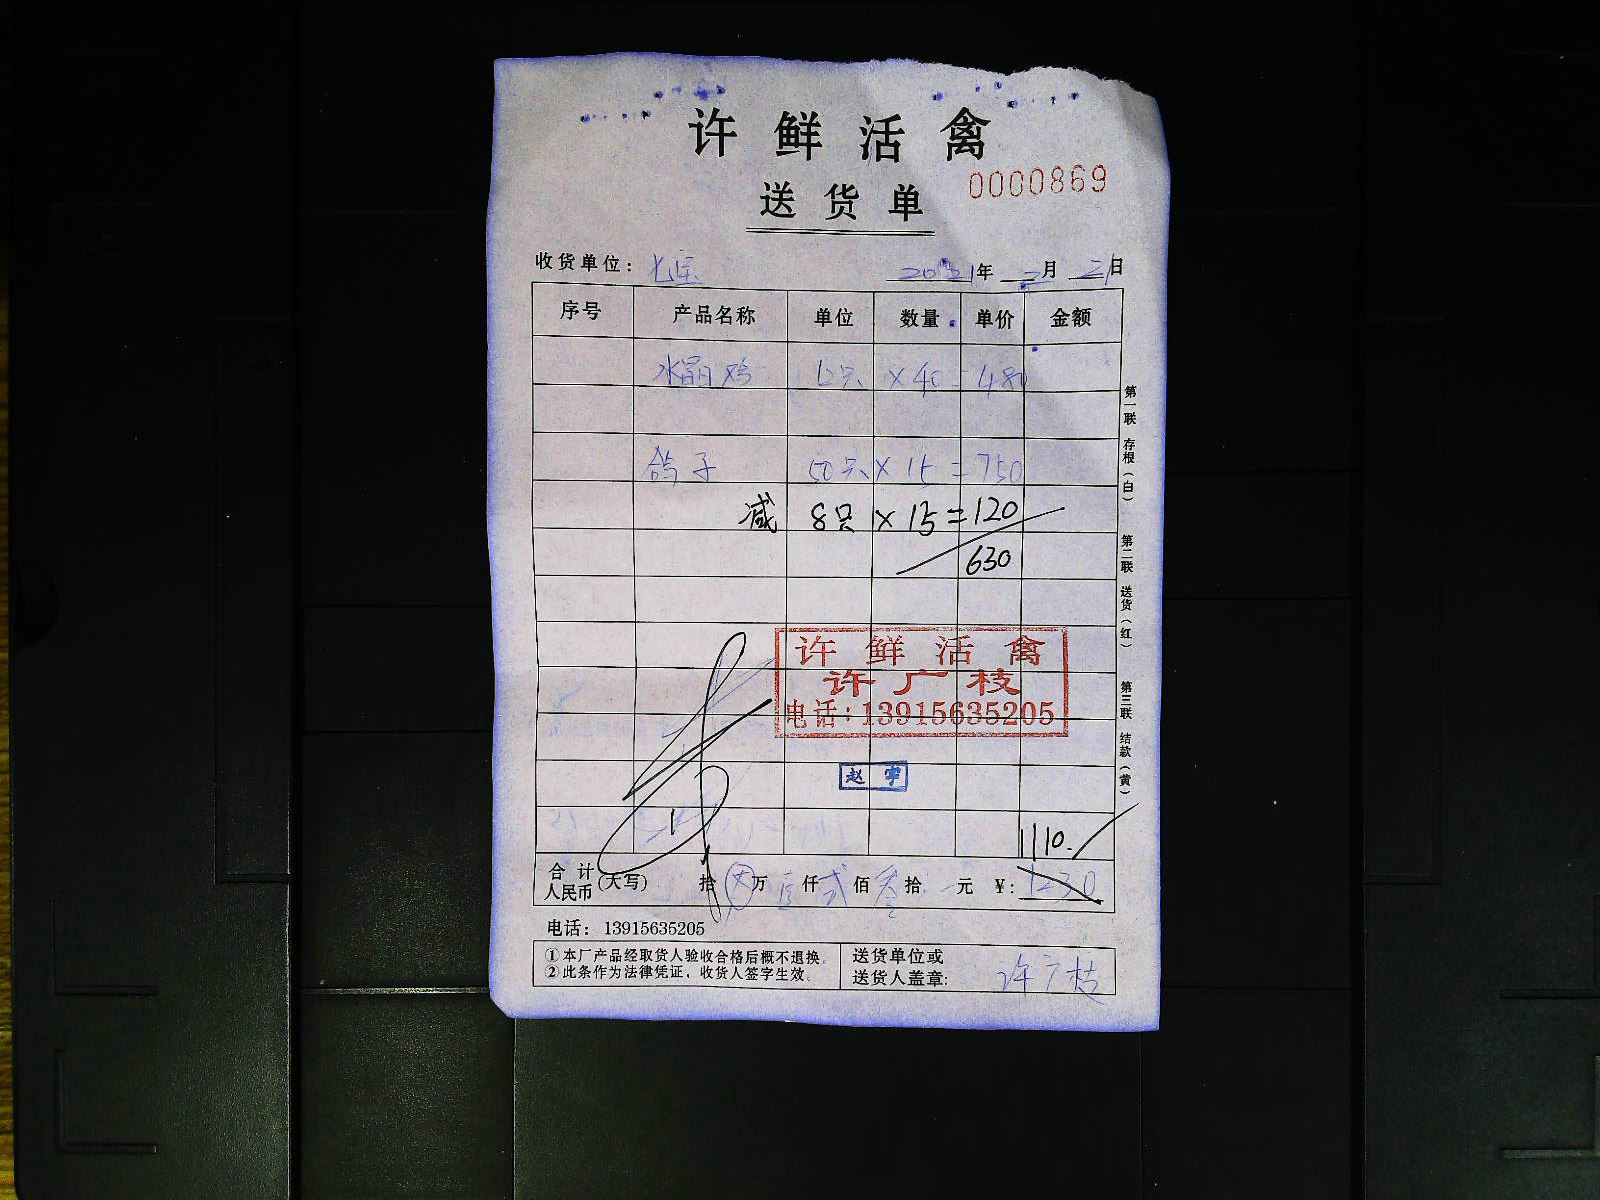 许鲜活禽
0000869
送货单
收货单位: 七宝 2021年 2月 21日
序号 产品名称 单位 数量 单价 金额
水晶鸡 12只 × 40 = 480
鸽子 50只 × 15 = 750
减 8只 × 15 = 120
630
许鲜活禽
许广枝
电话:13915635205
赵宇
1110.
合计人民币(大写) 拾 万 壹仟 贰佰 叁拾 元 ¥: 1230
电话: 13915635205
①本厂产品经取货人验收合格后概不退换。
②此条作为法律凭证,收货人签字生效。
送货单位或
送货人盖章: 许广枝
第一联 存根(白)
第二联 送货(红)
第三联 结款(黄)